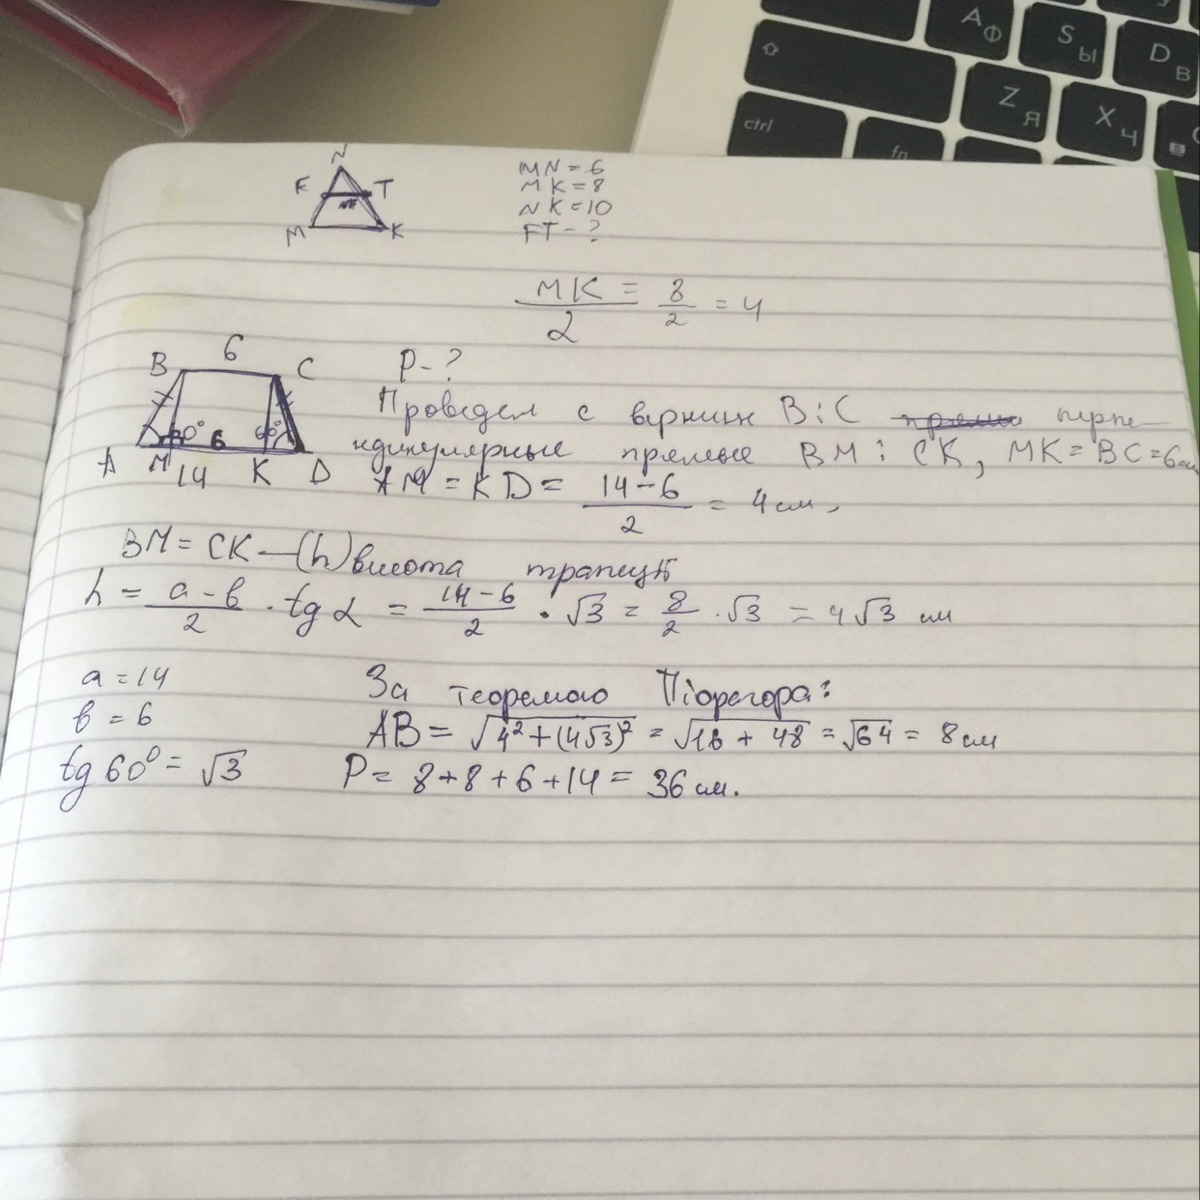 A Ф
S Ы
D В
Z Я
X Ч
ctrl
fn
N
F T
M K
MN = 6
MK = 8
NK = 10
FT - ?
MK/2 = 8/2 = 4
B 6 C
60° 6 60°
A M 14 K D
P - ?
Проведем с вершин B і C перпе-
ндикулярные прямые BM і CK, MK = BC = 6 см
AM = KD = (14 - 6)/2 = 4 см,
BM = CK — (h) висота трапеції
h = (a - b)/2 · tg α = (14 - 6)/2 · √3 = 8/2 · √3 = 4√3 см
a = 14
b = 6
tg 60° = √3
За теоремаю Піфрегора:
AB = √(4² + (4√3)²) = √(16 + 48) = √64 = 8 см
P = 8 + 8 + 6 + 14 = 36 см.